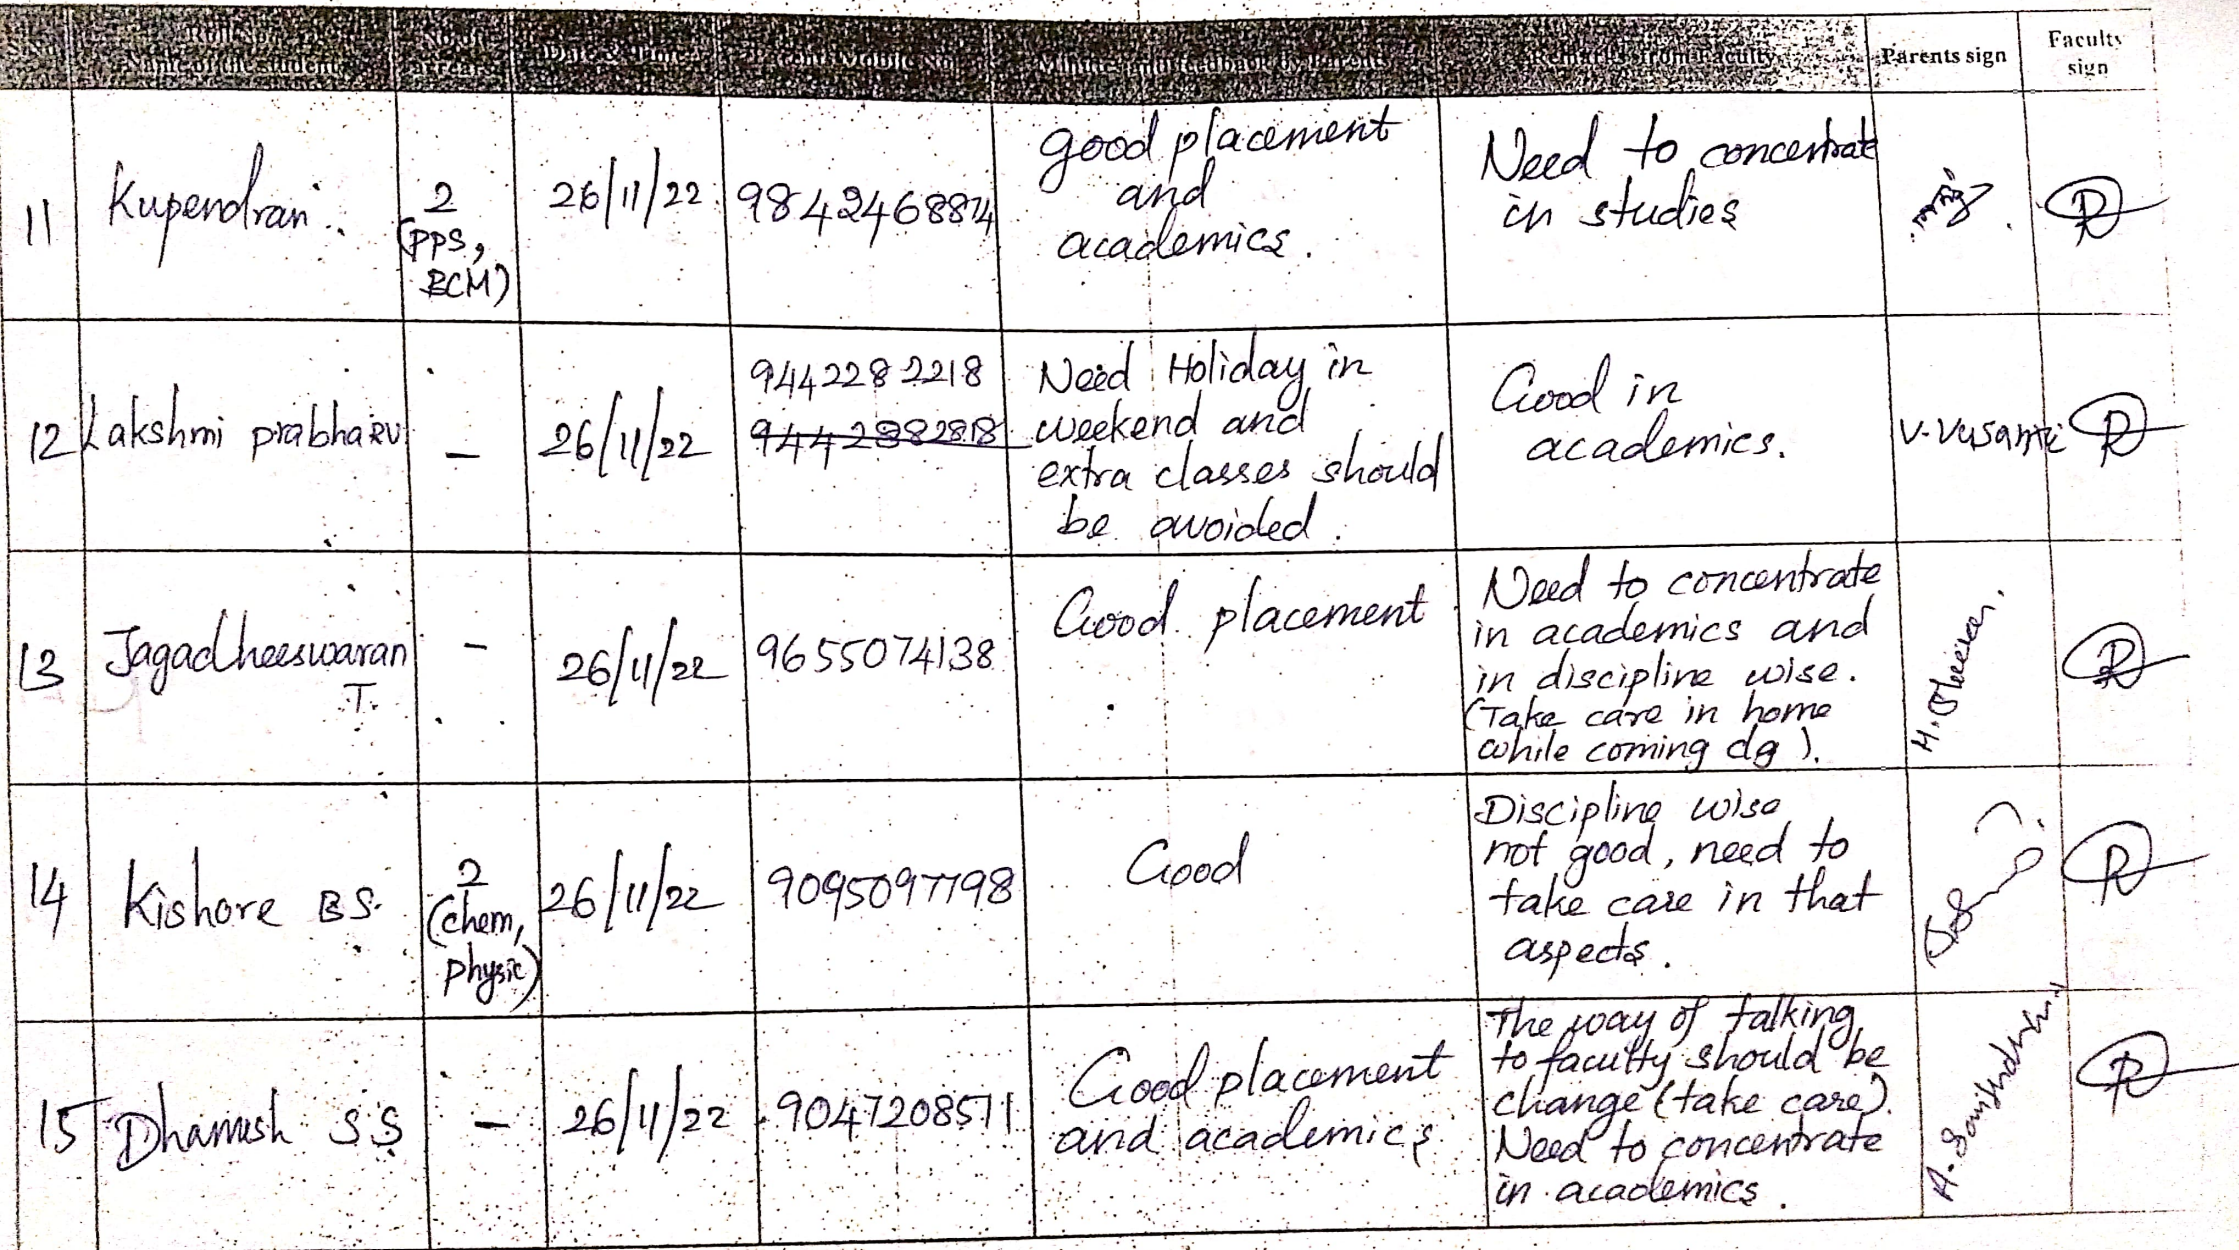 Roll No.
Name of the student
No. of
arrears
Date & Time
Parents Mobile No.
Minutes and feedback by Parents
Remarks from Faculty
Parents sign
Faculty
sign
11
Kupendran
2
(PPS,
BCM)
26/11/22
9842468874
good placement
and
academics.
Need to concentrate
in studies
R
12
Lakshmi prabha RV
-
26/11/22
9442282218
Need Holiday in
weekend and
extra classes should
be avoided.
Good in
academics.
V. Vasanti
R
13
Jagadheeswaran
T.
-
26/11/22
9655074138
Good placement
Need to concentrate
in academics and
in discipline wise.
(Take care in home
while coming clg).
R
14
Kishore B S.
2
(chem,
physic)
26/11/22
9095097798
Good
Discipline wise
not good, need to
take care in that
aspects.
R
15
Dhanush S.S
-
26/11/22
9047208571
Good placement
and academics
The way of talking
to faculty should be
change (take care).
Need to concentrate
in academics.
R